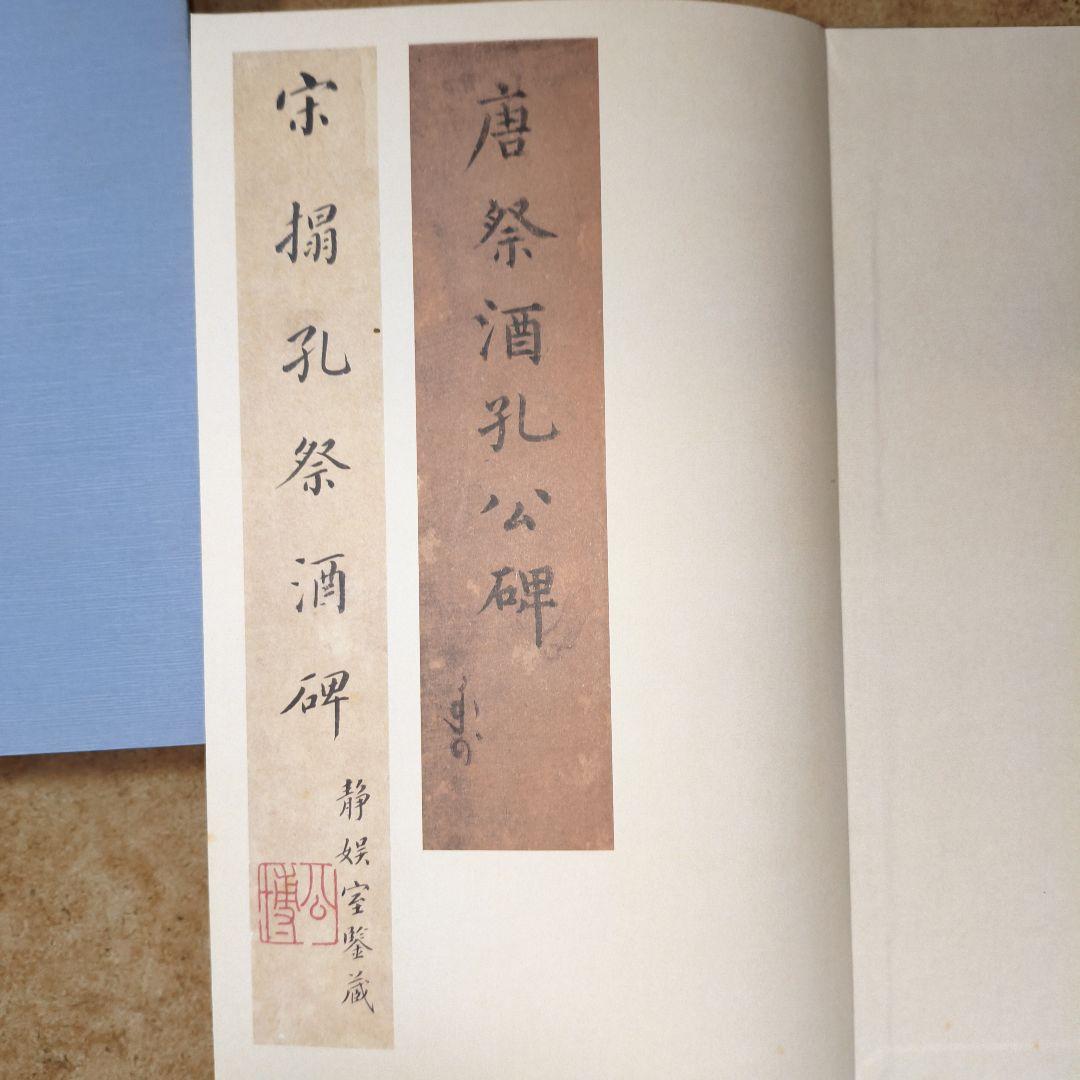 唐祭酒孔公碑
宋搨孔祭酒碑
静娱室鑒藏
公博